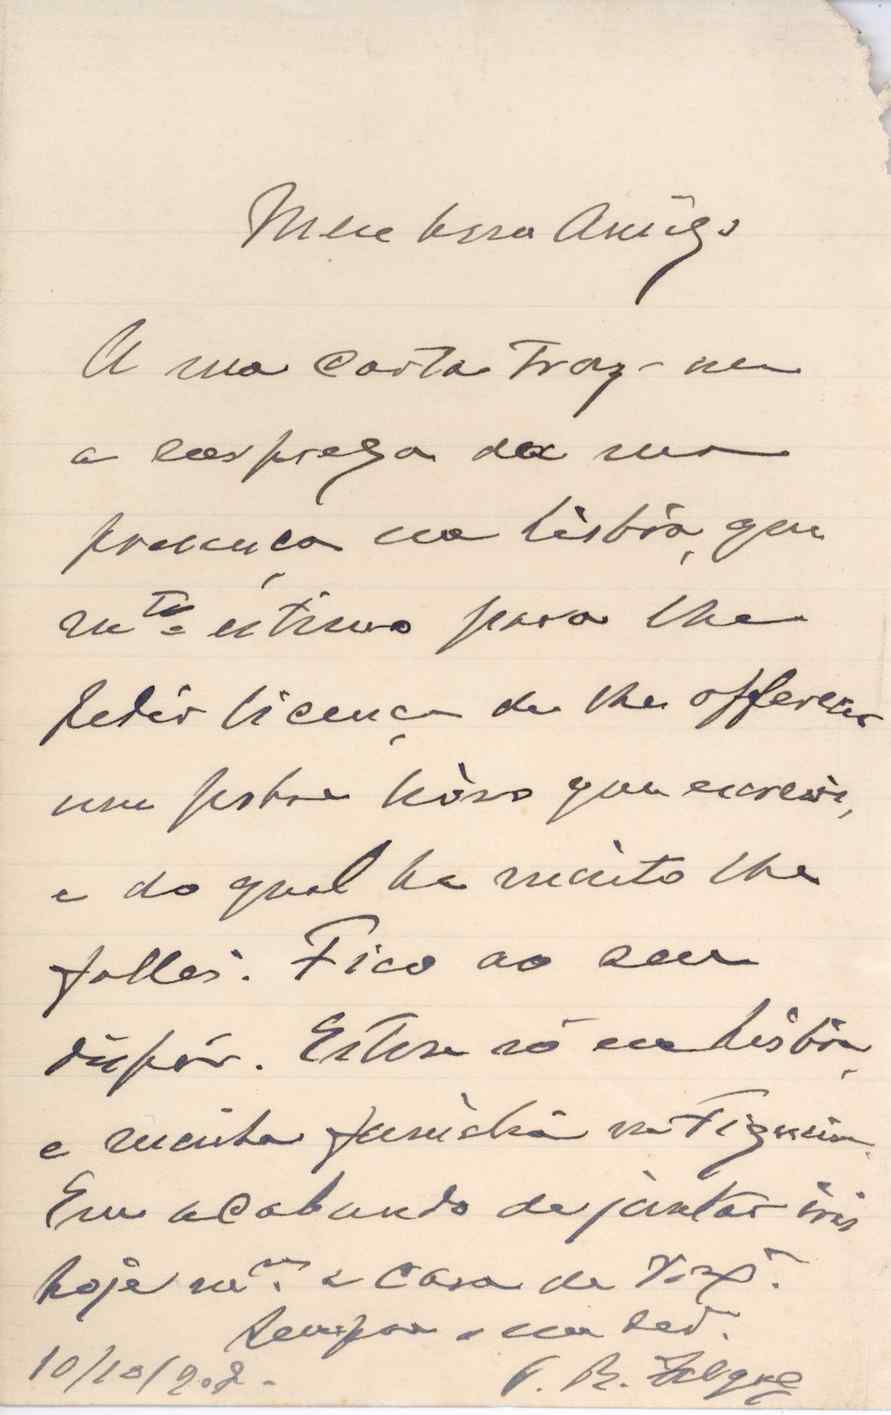 Meu bom Amigo
A sua carta traz-me
a surpreza da sua
presença em Lisbôa, que
mto estimo para lhe
pedir licença de lhe offerecer
um pobre livro que escrevi,
e do qual ha muito lhe
fallei. Fico ao seu
dispôr. Estou só em Lisbôa,
e minha familia na Figueira.
Em acabando de jantar irei
hoje mmo. a casa de V. Exa.
Sempre
10/10/902.